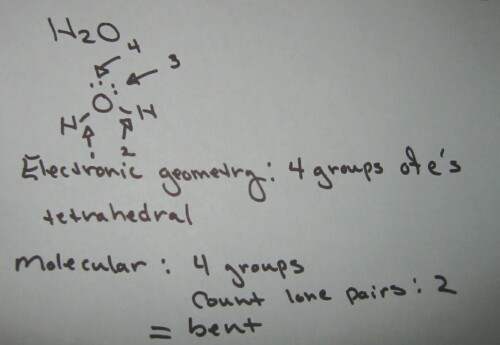 H2O
4
3
: :
O
H H
1 2
Electronic geometry: 4 groups of e's
tetrahedral
Molecular: 4 groups
Count lone pairs: 2
= bent